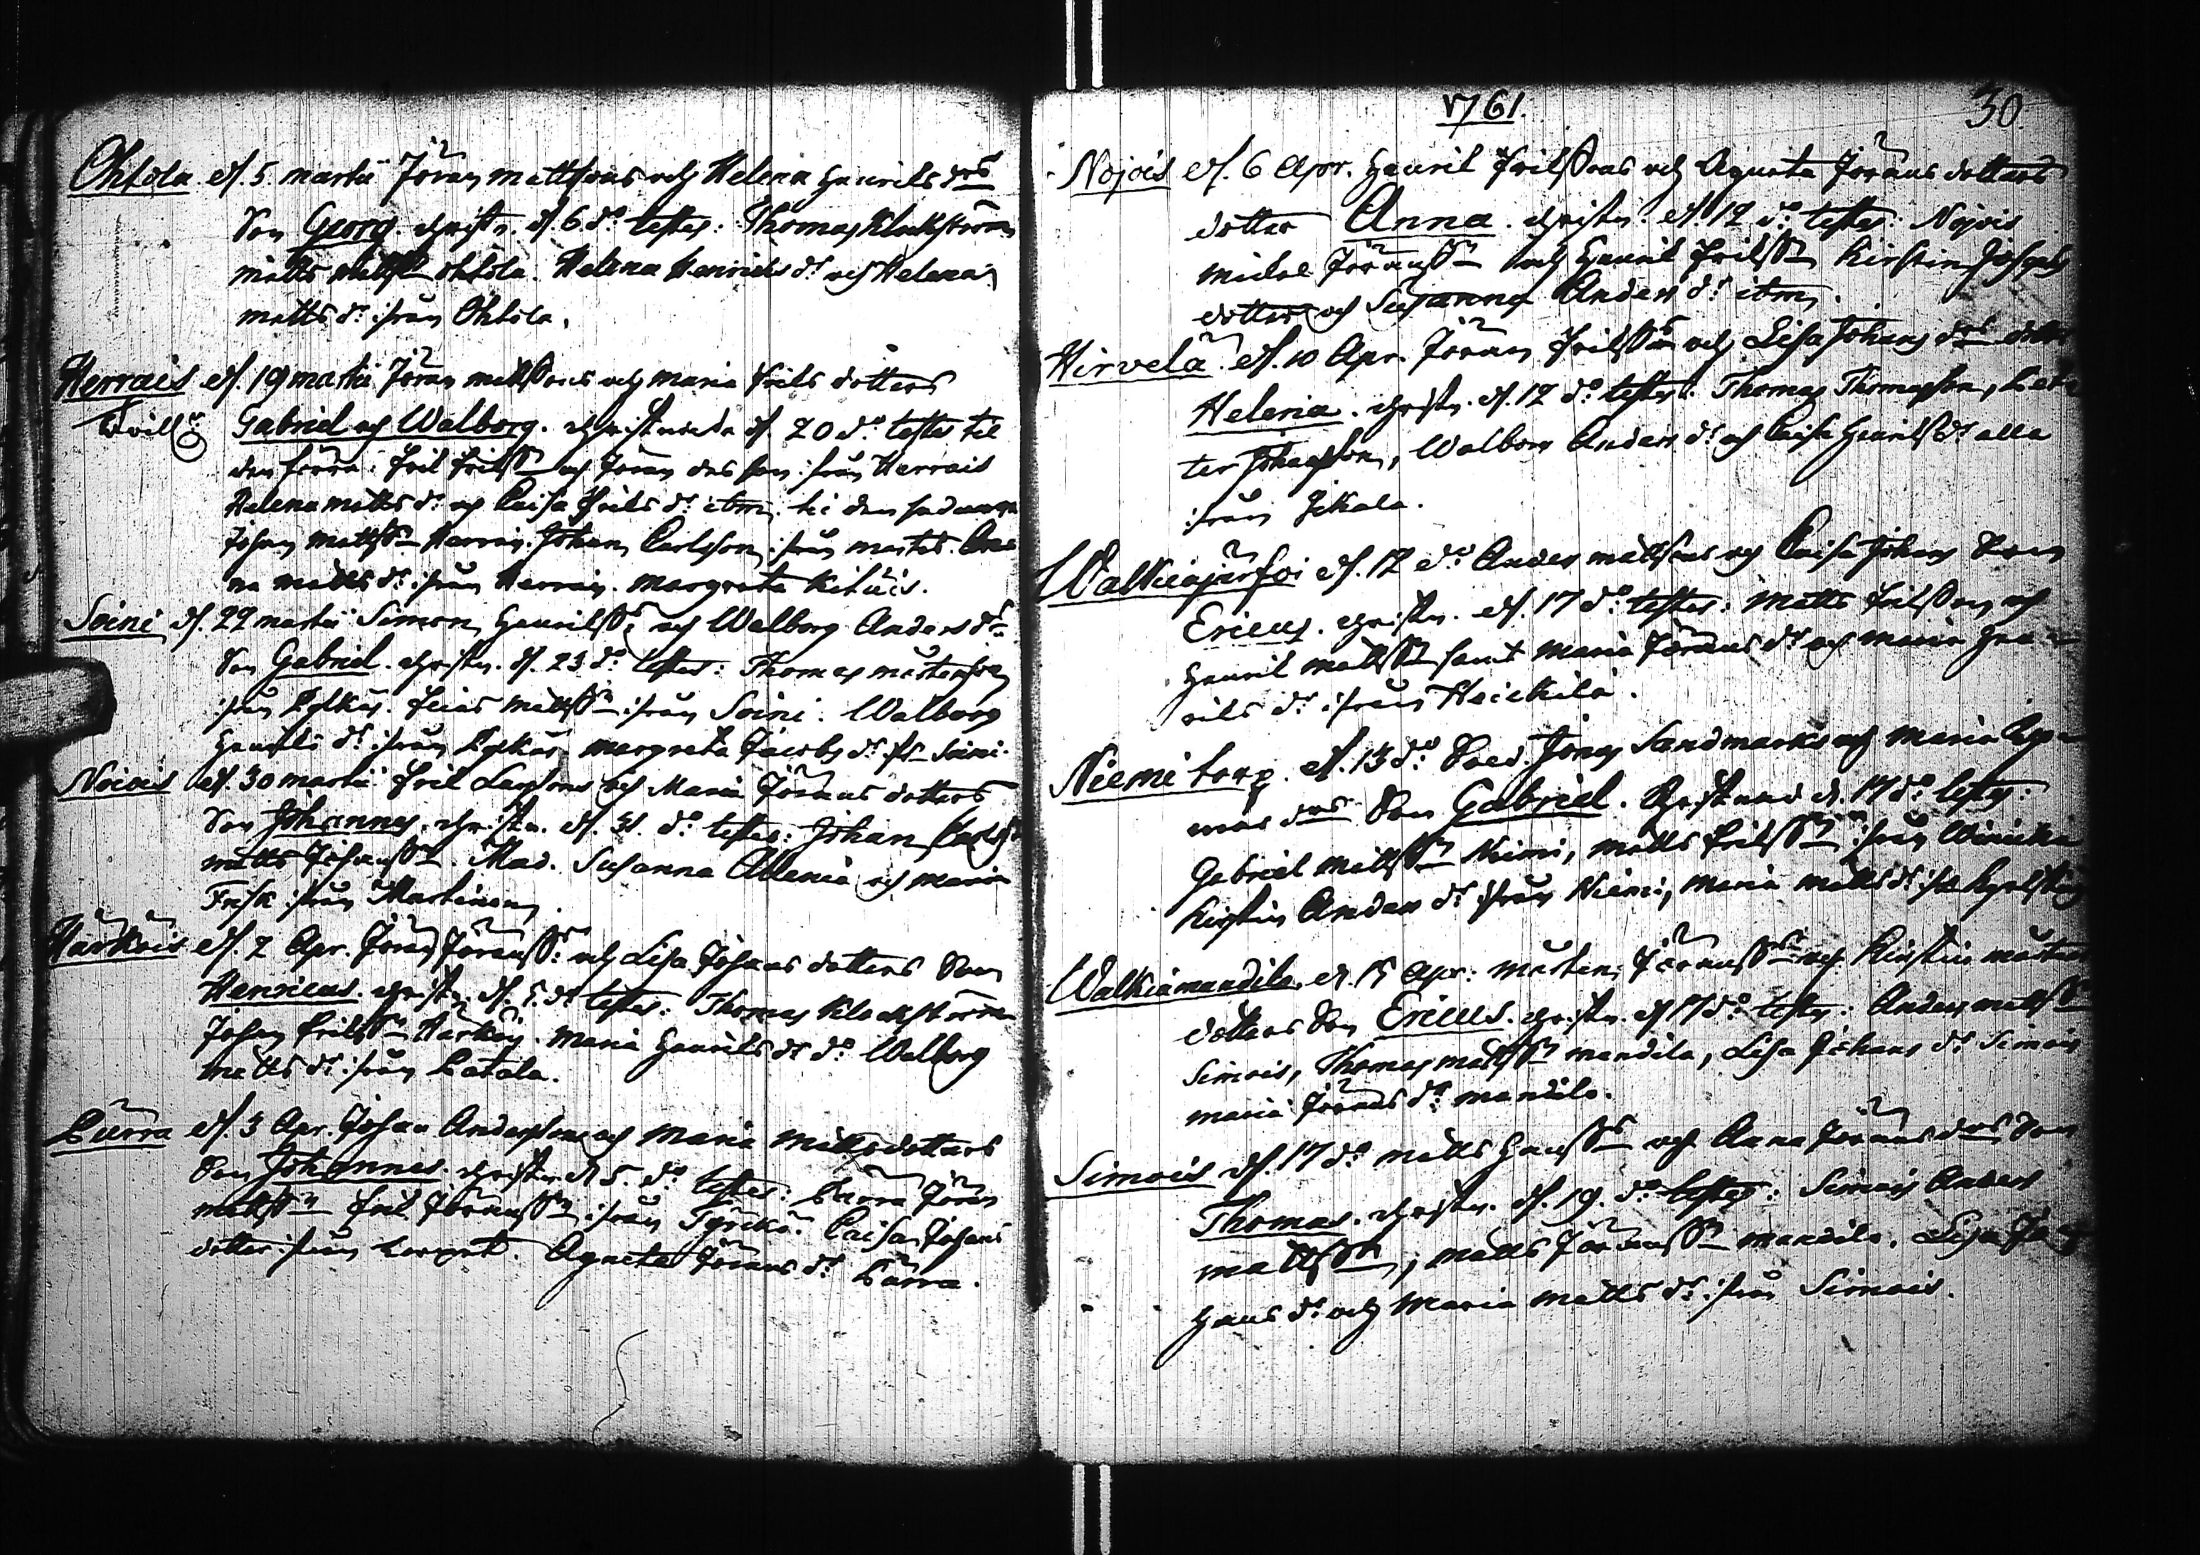 Ohtola d. 5. martii Jöran mattssons och Helena Henriks drs
Son Georg. christn. d. 6 do. testes: Thomas Klockström
matts ohtola. Helena Henrichs dr och Helena
matts dr ifrån Ohtola.
Herrais d. 19 martii Jöran mattssons och maria Eriks dotters
tvill: Gabriel och Walborg. christnade d. 20 do. testes til
den förra: Erik Eriksson och Jöran ifrån Herrais
Helena matts dr och Caisa Eriks dr item, til den sednare
Johan mattsson Herrais. Johan Carlsson ifrån An-
na matts dr ifrån Herrais. margreta
Soini d. 22 martii Simon Henrikss: och Walborg Anders dr:
Son Gabriel. christn. d. 23 do. testes: Thomas mårtensson
ifrån mattsson ifrån Soini. Walborg
Henriks dr ifrån margreta Jacobs dr fr. Soini.
d. 30 martii Erik och Maria Jörans dotters
Son Johannes. christn. d. 31. do. testes: Johan
matts Johansson. Mad. Susanna Allenia och maria
Fresk ifrån Martinen.
Härköis d. 2 Apr. Jöran Jöranss: och Lisa Johans dotters Son
Henricus. christn. d. 5. do. testes: Thomas Klockström
Johan Eriksson Härköis. Maria Henriks dr do. Walborg
matts dr ifrån
Pärra d. 3 Apr. Johan Anderssons och maria mattsdotters
Son Johannes. christn. d. 5. do. testes: Pärra Jöran
mattsson Erik Jöransson ifrån Caisa Johans
dotter ifrån Agneta Jörans dr Pärra.
1761.
30.
Nojois d. 6 Apr. Henrik Erikssons och Agneta Jörans dotters
dotter Anna. christn. d. 12 do. testes: Nojois
mickel Jöransson och Henrik Eriksson Kirstin Josephs
dotter och Susanna Anders dr item.
Hirvelä d. 10 Apr. Jöran Erikssons och Lisa Johans drs dotter
Helena. christn. d. 12 do. testes: Thomas Thomasson, Pet-
ter Johansson, Walbor Anders dr och Caisa Henriks dr alla
ifrån Jckala.
Walkiajärfvi d. 12 do. Anders mattssons och Caisa Johans Son
Ericus. christn. d. 17 do. testes: matts Eriksson och
Henrik mattsson samt maria Jörans dr och maria Hen-
riks dr ifrån Heickilä.
Niemi torp. d. 13 do. Jonas Sandmarks och Maria
mas drs Son Gabriel. Christnad d. 17 do. testes:
Gabriel mattsson Niemi, matts Eriksson ifrån
Kirstin Anders dr ifrån Niemi, maria matts dr
Walkiamandila d. 15 Apr. mårten Jöranssons och Kirstin mårtens
dotters Son Ericus. christn. d. 17 do. testes: Anders mattsson
Simois, Thomas mattsson mandila, Lisa Johans dr Simois
maria Jörans dr mandila.
Simois d. 17 do. matts Hanssons och Anna Jörans drs Son
Thomas. christn. d. 19. do. testes: Simois Anders
mattsson, matts Jöransson mandila. Lisa
Hans dr och maria matts dr ifrån Simois.